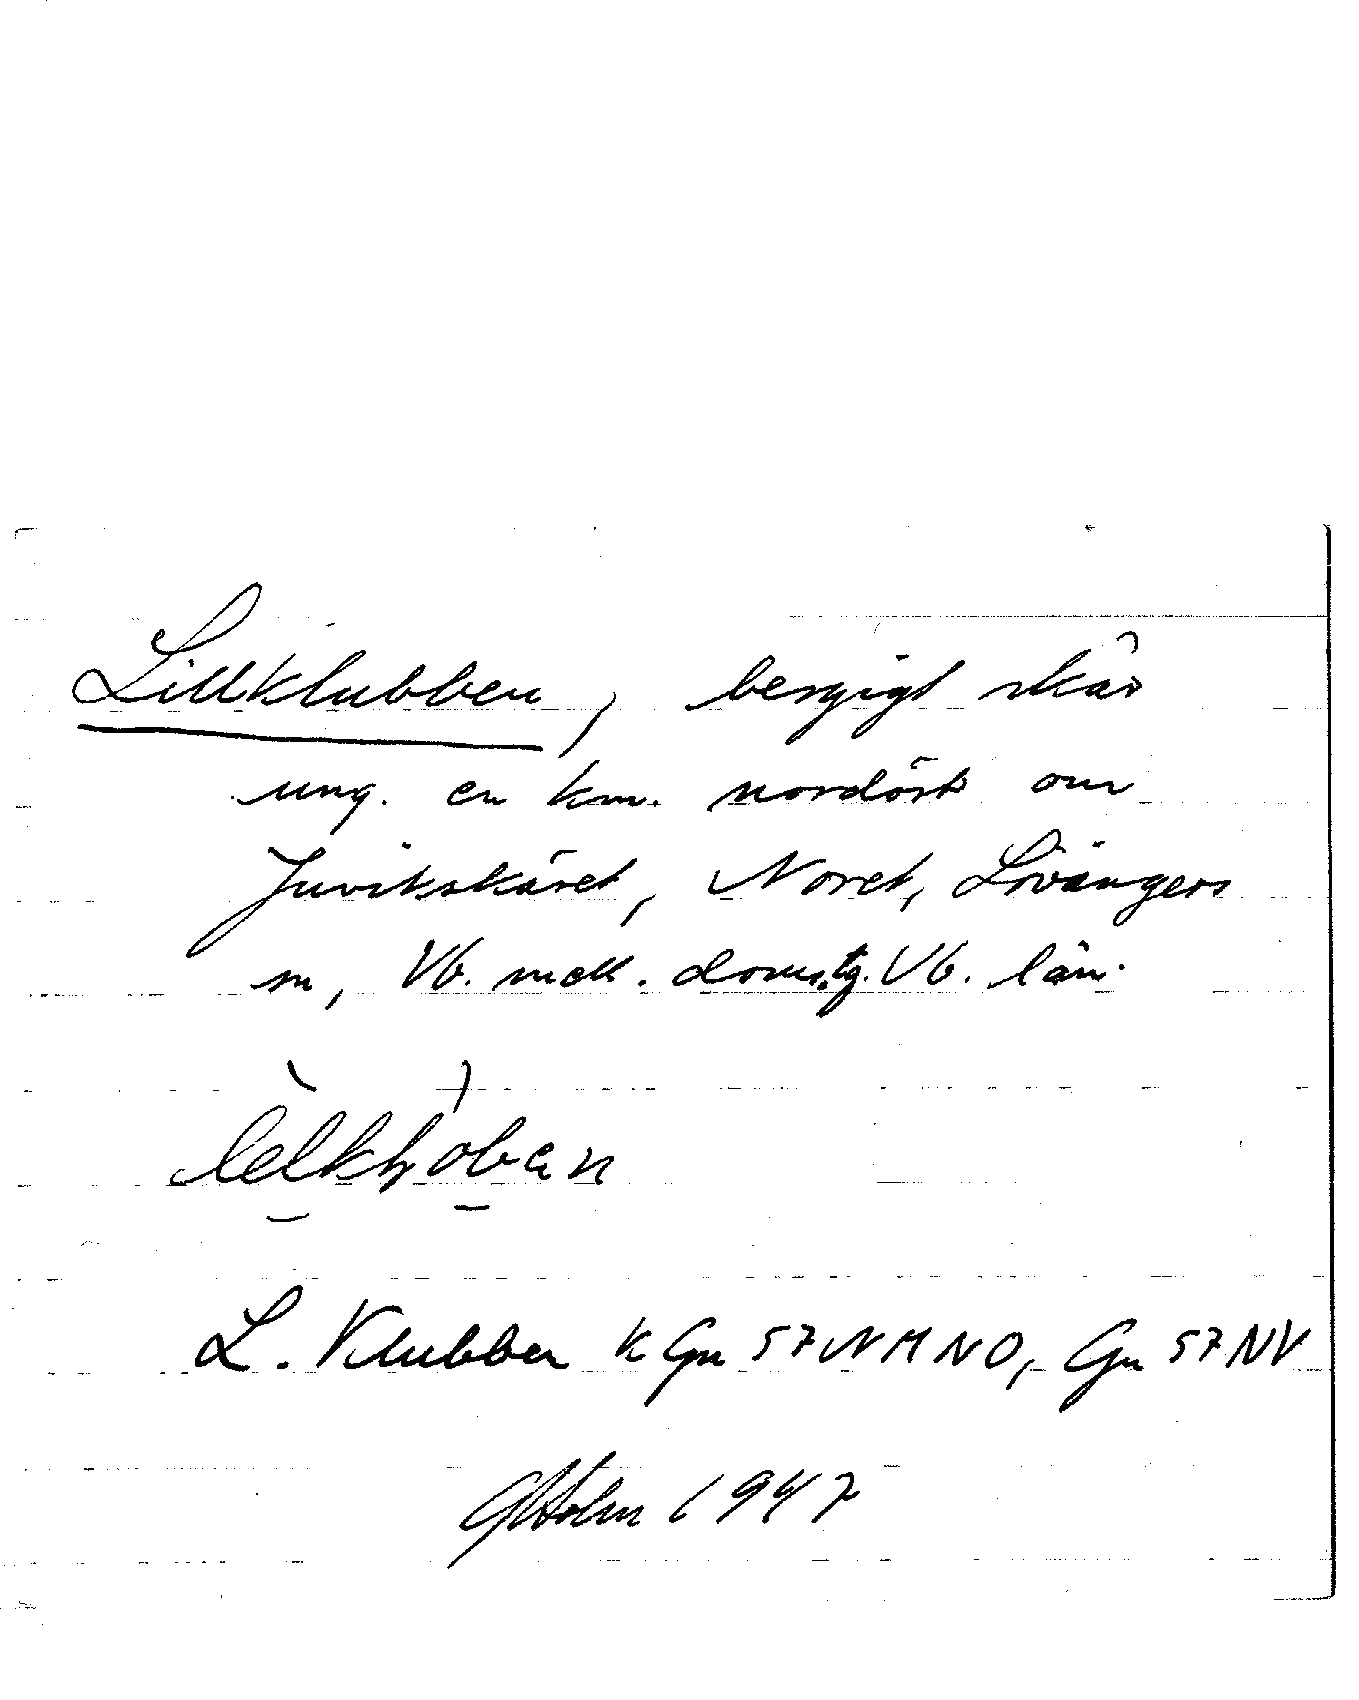 Lillklubben, bergigt skär
ung. en km. nordöst om
Juvikskäret, Noret, Lövångers
sn, Vb. mell. doms.tg. Vb. län.
L. Klubben K Gn 57 NM NO, Gn 57 NV
GHolm 1947